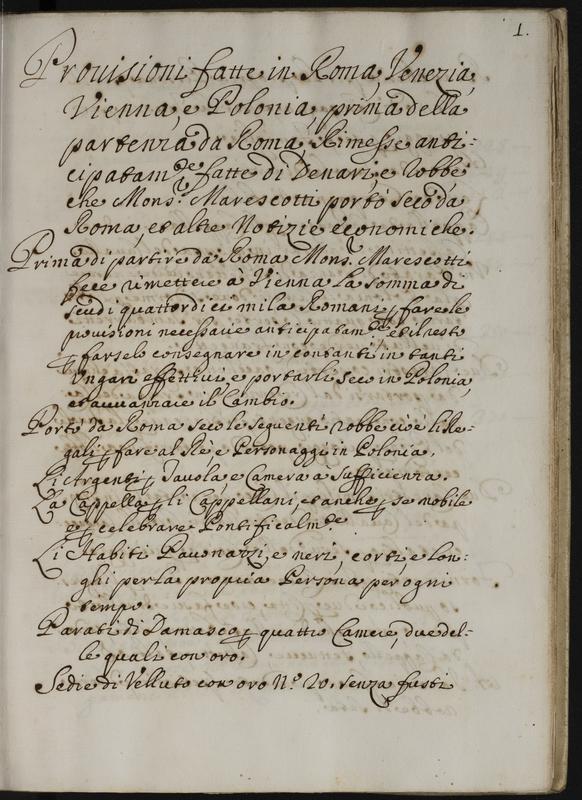 1.
Provisioni fatte in Roma, Venezia,
Vienna, e Polonia, prima della
partenza da Roma, Rimesse anti=
cipatam.te fatte di Denari, e robbe
che Mons.r Marescotti portò seco da
Roma, et altre Notizie economiche.
Prima di partire da Roma Mons.r Marescotti
fece rimettere à Vienna la somma di
scudi quattordici mila Romani p fare le
provisioni necessarie anticipatam.te, et il resto
p farselo consegnare in contanti in tanti
Ungari effettivi, e portarli seco in Polonia,
et avvanzare il Cambio.
Portò da Roma seco le seguenti robbe cioè li Re=
gali p fare al Rè, e Personaggi in Polonia.
Li Argenti p Tavola e Camera à sufficienza.
La Cappella p li Cappellani, et anche p se mobile
e p celebrare Pontificalm.te
Li Habiti Pavonazzi, e neri, corti e lon=
ghi per la propria Persona per ogni
tempo.
Parati di Damasco p quattro Camere, due del=
le quali con oro.
Sedie di Velluto con oro N.o 20. senza fusti